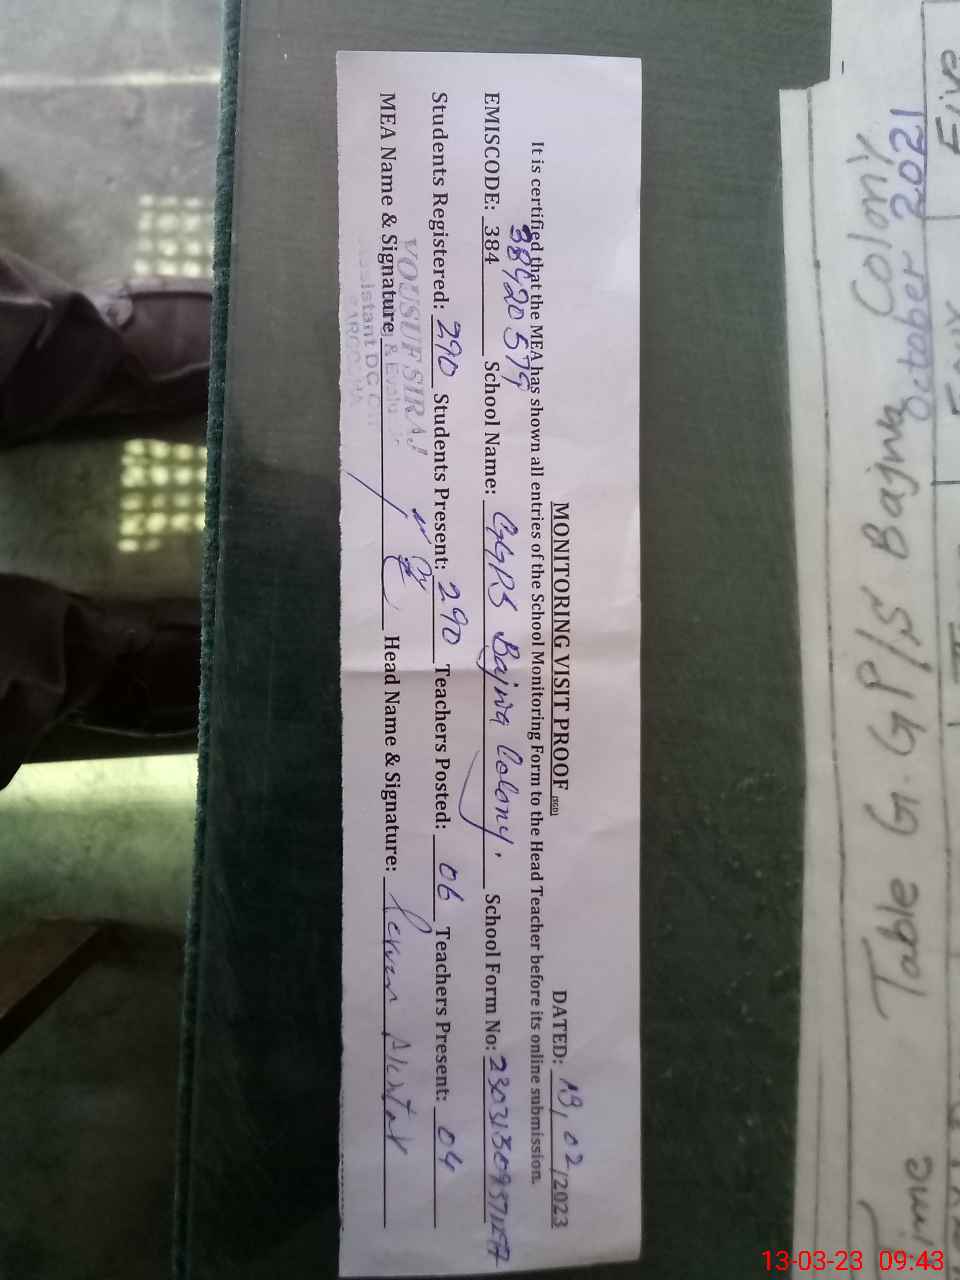 MONITORING VISIT PROOF (SED)
DATED: 13, 02 /2023
It is certified that the MEA has shown all entries of the School Monitoring Form to the Head Teacher before its online submission.
38420579
EMISCODE: 384 School Name: GGPS Bajwa Colony. School Form No:
Students Registered: 290 Students Present: 290 Teachers Posted: 06 Teachers Present: 04
MEA Name & Signature Head Name & Signature:
YOUSUF SIRAJ
Assistant DC
Time Table G.GP/S Bajwa Colony
October 2021
13-03-23 09:43